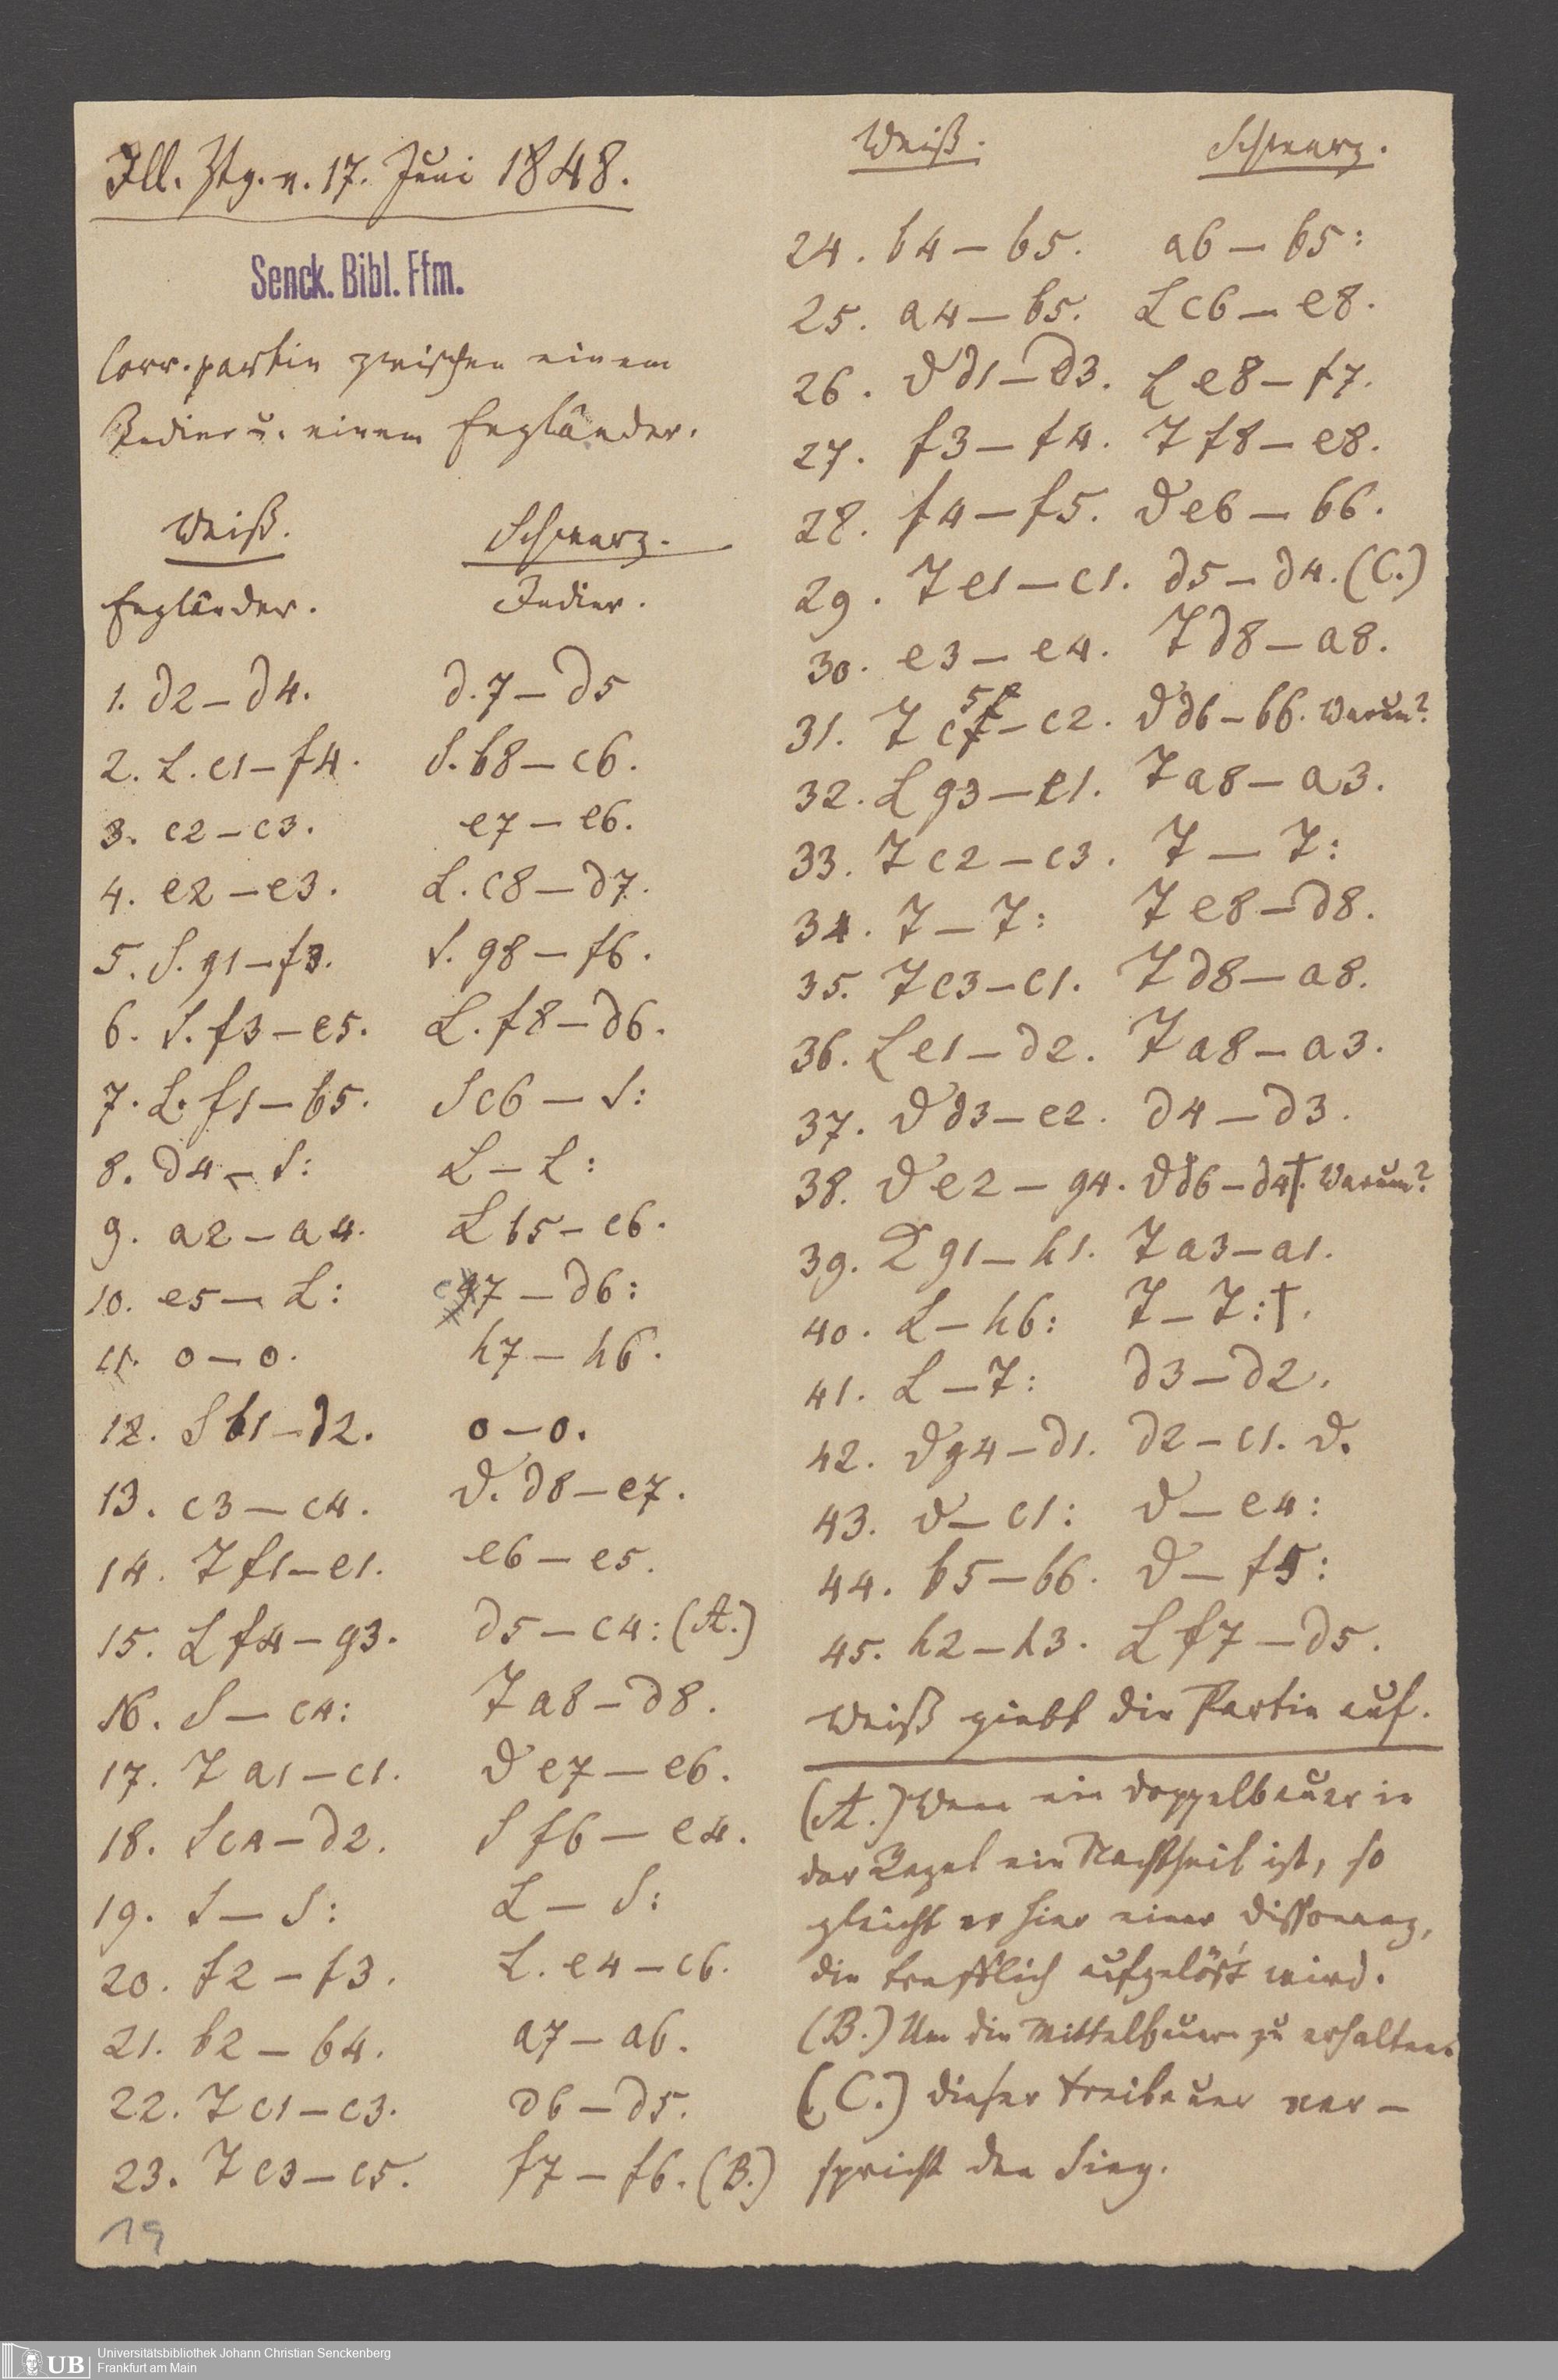 Ill. Ztg. v. 17. Juni 1848.
Senck. Bibl. Ffm.
Corr. partie zwischen einem
Indier u. einem Engländer.
Weiß. Schwarz.
Engländer. Indier.
1. d2 – d4. d.7 – d5
2. L. c1 – f4. S. b8 – c6.
3. c2 – c3. e7 – e6.
4. e2 – e3. L. c8 – d7.
5. S. g1 – f3. S. g8 – f6.
6. S. f3 – e5. L. f8 – d6.
7. L. f1 – b5. Sc6 – S:
8. d4 – S: L – L:
9. a2 – a4. L b5 – c6.
10. e5 – L: c7 – d6:
11. o – o. h7 – h6.
12. S b1 – d2. o – o.
13. c3 – c4. D. d8 – e7.
14. T f1 – e1. e6 – e5.
15. L f4 – g3. d5 – c4: (A.)
16. S – c4: T a8 – d8.
17. T a1 – c1. D e7 – e6.
18. S c4 – d2. S f6 – e4.
19. S – S: L – S:
20. f2 – f3. L. e4 – c6.
21. b2 – b4. a7 – a6.
22. T c1 – c3. d6 – d5.
23. T c3 – c5. f7 – f6. (B.)
19
Weiß. Schwarz.
24. b4 – b5. a6 – b5:
25. a4 – b5. L c6 – e8.
26. D d1 – d3. L e8 – f7.
27. f3 – f4. T f8 – e8.
28. f4 – f5. D e6 – b6.
29. T e1 – c1. d5 – d4. (C.)
30. e3 – e4. T d8 – a8.
31. T c5 – c2. D d6 – b6. Warum?
32. L g3 – e1. T a8 – a3.
33. T c2 – c3. T – T:
34. T – T: T e8 – d8.
35. T c3 – c1. T d8 – a8.
36. L e1 – d2. T a8 – a3.
37. D d3 – e2. d4 – d3.
38. D e2 – g4. D d6 – d4†. Warum?
39. K g1 – h1. T a3 – a1.
40. L – h6: T – T:†.
41. L – T: d3 – d2.
42. D g4 – d1. d2 – c1. D.
43. D – c1: D – e4:
44. b5 – b6. D – f5:
45. h2 – h3. L f7 – d5.
Weiß giebt die Partie auf.
(A.) Wenn ein Doppelbauer in
der Regel ein Nachtheil ist, so
gleicht er hier einer Dissonanz,
die trefflich aufgelöst wird.
(B.) Um die Mittelbauern zu erhalten.
(C.) Dieser Freibauer ver –
spricht den Sieg.
Universitätsbibliothek Johann Christian Senckenberg
Frankfurt am Main
UB